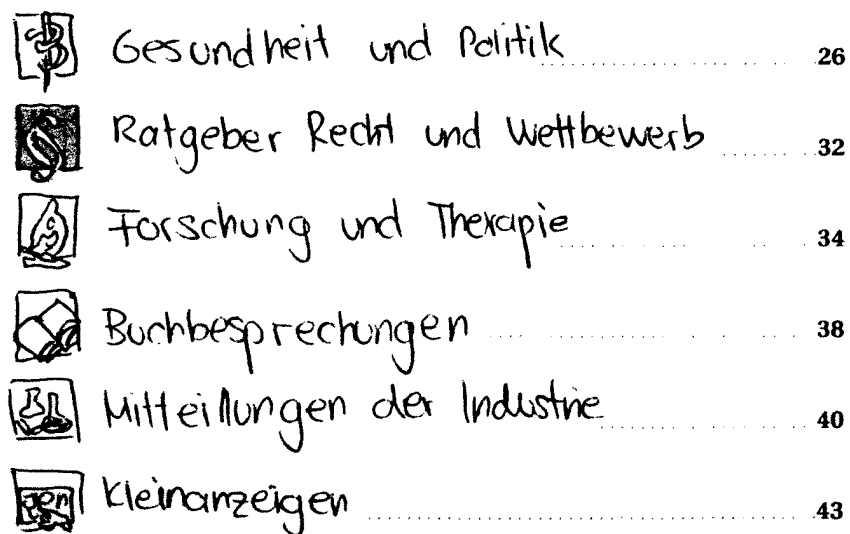 Gesundheit und Politik 26
Ratgeber Recht und Wettbewerb 32
Forschung und Therapie 34
Buchbesprechungen 38
Mitteillungen der Industrie 40
gen Kleinanzeigen 43